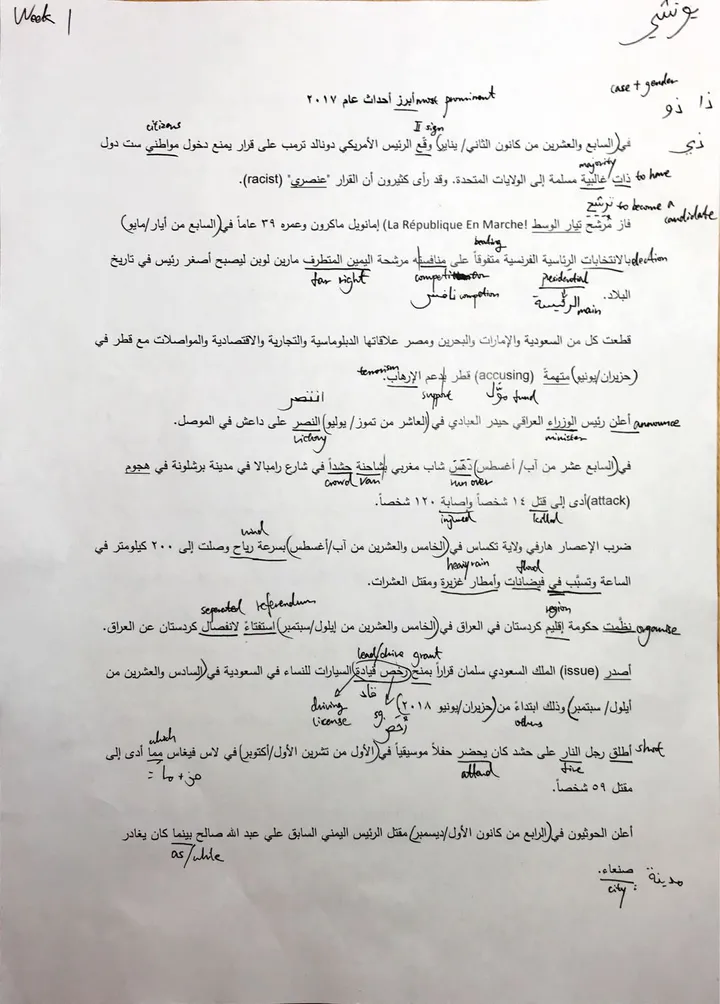 Week 1
يونشي
case + gender
ذا ذو
ذي
أبرز أحداث عام ٢٠١٧ most prominent
citizens II sign
في (السابع والعشرين من كانون الثاني/ يناير) وقّع الرئيس الأمريكي دونالد ترمب على قرار يمنع دخول مواطني ست دول
majority
ذات غالبية مسلمة إلى الولايات المتحدة. وقد رأى كثيرون أن القرار "عنصري" (racist). to have
ترشح to become a candidate
فاز مُرشح تيار الوسط (La République En Marche!) إمانويل ماكرون وعمره ٣٩ عاماً في (السابع من أيار/مايو)
beating
بالانتخابات الرئاسية الفرنسية متفوقاً على منافسته مرشحة اليمين المتطرف مارين لوبن ليصبح أصغر رئيس في تاريخ election
far right presidential
البلاد.
الرئيسية main
قطعت كل من السعودية والإمارات والبحرين ومصر علاقاتها الدبلوماسية والتجارية والاقتصادية والمواصلات مع قطر في
terrorism
(حزيران/يونيو) متهمةً (accusing) قطر بدعم الإرهاب.
support موّل fund
انتصر
أعلن رئيس الوزراء العراقي حيدر العبادي في (العاشر من تموز/ يوليو) النصر على داعش في الموصل. announce
victory minister
في (السابع عشر من آب/ أغسطس) دَهَسَ شاب مغربي بشاحنة حشداً في شارع رامبالا في مدينة برشلونة في هجوم
crowd van run over
(attack) أدى إلى قتل ١٤ شخصاً وإصابة ١٢٠ شخصاً.
injured killed
wind
ضرب الإعصار هارفي ولاية تكساس في (الخامس والعشرين من آب/أغسطس) بسرعة رياح وصلت إلى ٢٠٠ كيلومتر في
heavy rain flood
الساعة وتسبَّب في فيضانات وأمطار غزيرة ومقتل العشرات.
separated referendum region
نظّمت حكومة إقليم كردستان في العراق في (الخامس والعشرين من إيلول/سبتمبر) استفتاءً لانفصال كردستان عن العراق. organise
lead/drive grant
أصدر (issue) الملك السعودي سلمان قراراً بمنح رخص قيادة السيارات للنساء في السعودية في (السادس والعشرين من
قاد
أيلول/ سبتمبر) وذلك ابتداءً من (حزيران/يونيو ٢٠١٨)
driving license sg. others
which
أطلق رجل النار على حشد كان يحضر حفلاً موسيقياً في (الأول من تشرين الأول/أكتوبر) في لاس فيغاس مما أدى إلى shoot
fire attend من + ما =
مقتل ٥٩ شخصاً.
أعلن الحوثيون في (الرابع من كانون الأول/ديسمبر) مقتل الرئيس اليمني السابق علي عبد الله صالح بينما كان يغادر
as/while
صنعاء.
مدينة : city